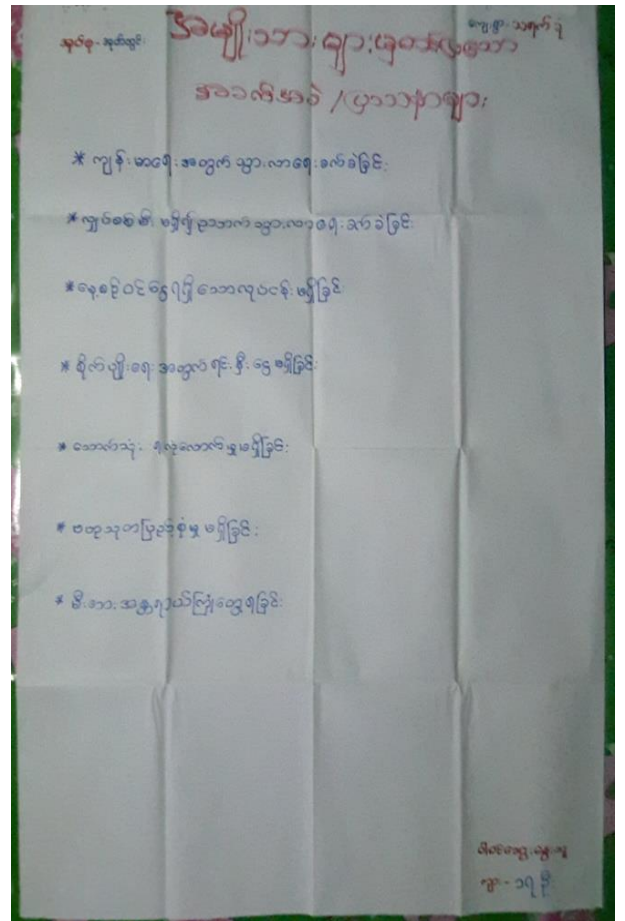 အုပ်စု - အုတ်တွင်း
ကျေးရွာ - သရက်ပုံ
အမျိုးသားများမှတင်ပြသော
အခက်အခဲ / ပြဿနာများ
* ကျန်းမာရေးအတွက် သွားလာရေးခက်ခဲခြင်း
* လျှပ်စစ်မီး မရှိ၍ ညအမှောက် သွားလာရေးခက်ခဲခြင်း
* နေ့စဉ်ဝင်ငွေရရှိသောလုပ်ငန်းမရှိခြင်း
* စိုက်ပျိုးရေးအတွက် ရင်းနှီးငွေမရှိခြင်း
* သောက်သုံးရေလုံလောက်မှုမရှိခြင်း
* ဗဟုသုတပြည့်စုံမှု မရှိခြင်း
* မီးဘေးအန္တရာယ်ကြုံတွေ့ရခြင်း
ပါဝင်ဆွေးနွေးသူ
ကျား - ၁၇ ဦး